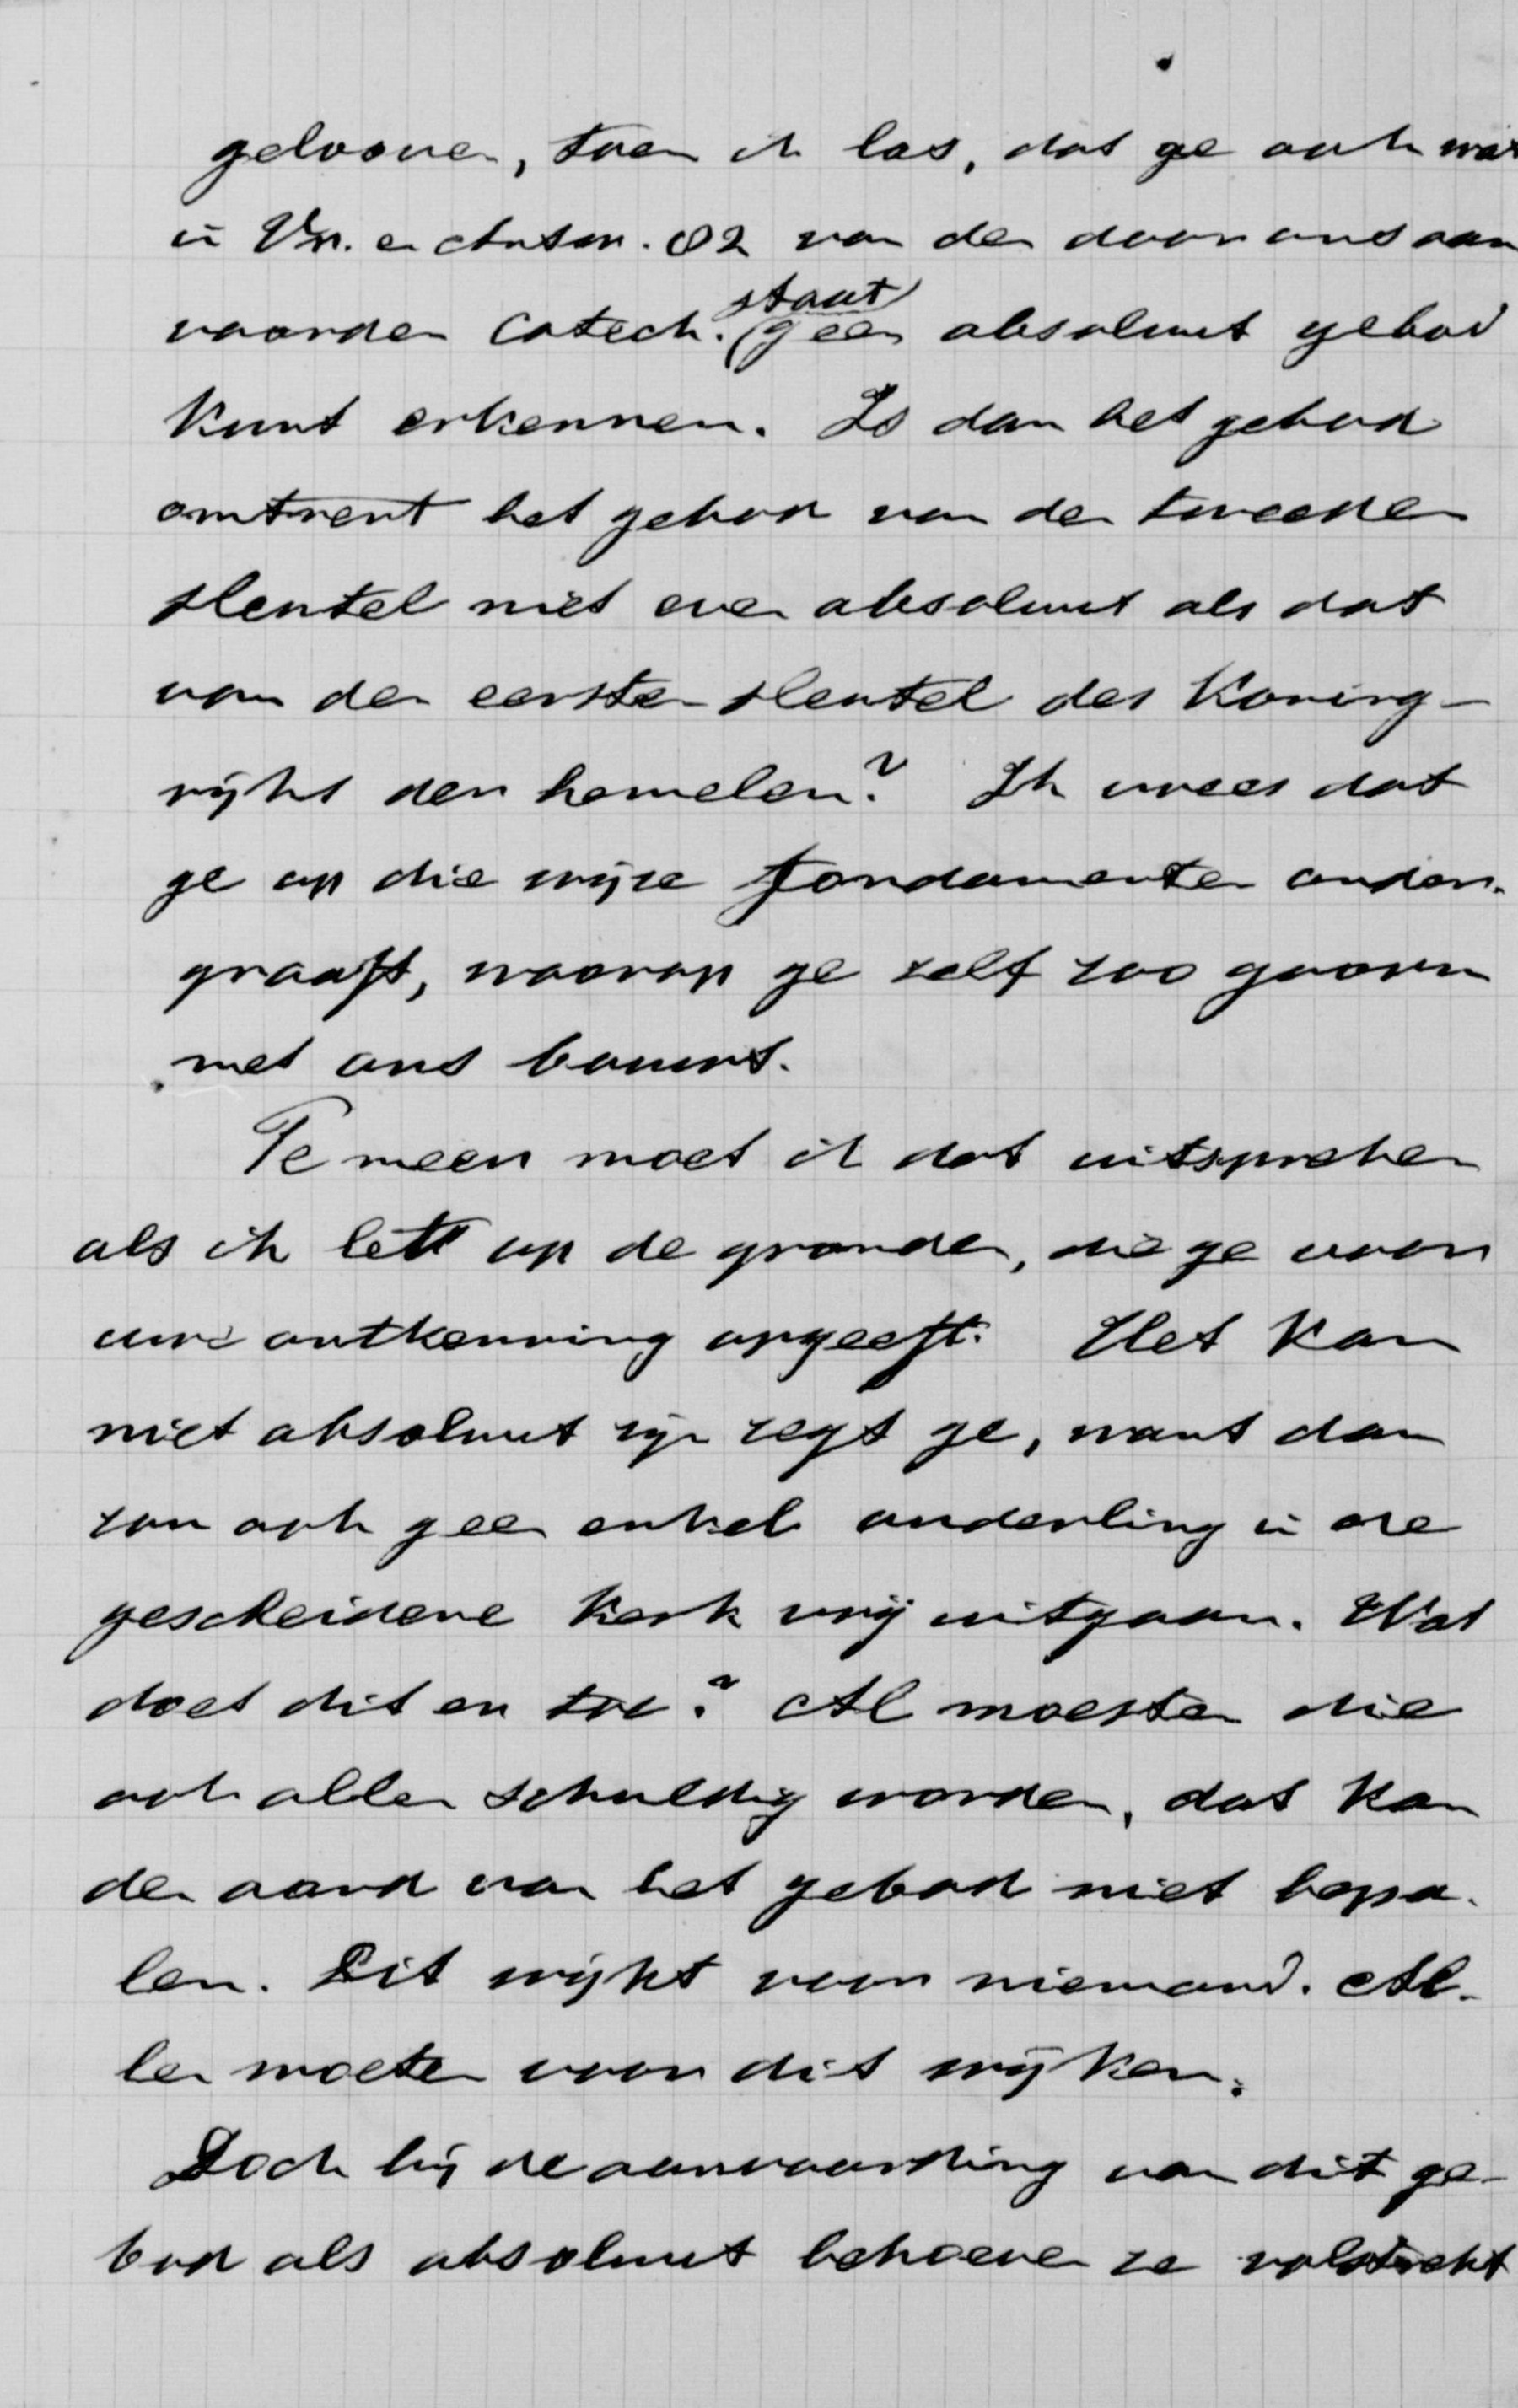 gelooven, toen ik las, dat ge ook wat
in Vr. en Antw. 82 van den door ons aan
vaarden Catech. staat geen absoluut gebod
kunt erkennen. Is dan het gebod
omtrent het gebod van den tweeden
sleutel niet even absoluut als dat
van den eersten sleutel des Koning-
rijks der hemelen? Ik vrees dat
ge op die wijze fondamenten onder-
graaft, waarop ge zelf zoo gaarne
met ons bouwt.
Te meer moet ik dat uitspreken
als ik let op de gronden, die ge voor
uwe ontkenning opgeeft. Het kan
niet absoluut zijn zegt ge, want dan
zou ook geen enkel ouderling in de
gescheidene Kerk vrij uitgaan. Wat
doet dit er toe? Al moesten die
ook allen schuldig worden, dat kan
den aard van het gebod niet bepa-
len. Dit wijkt voor niemand. Al-
len moeten voor dit wijken.
Doch bij de aanvaarding van dit ge-
bod als absoluut behoeven ze volstrekt